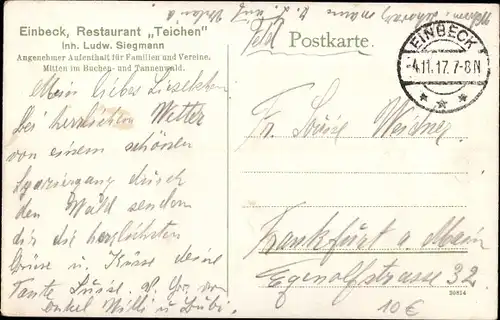 Einbeck, Restaurant „Teichen"
Inh. Ludw. Siegmann
Angenehmer Aufenthalt für Familien und Vereine.
Mitten im Buchen- und Tannenwald.
Feld Postkarte.
EINBECK
-4.11.17. 7-8 N
Mein liebes Lieselchen
bei herrlichem Wetter
von einem schönen
Spaziergang durch
den Wald senden
dir die herzlichsten
Grüsse u. Küsse deine
Tante Luise
onkel Willi u.
Frankfurt a. Main
Egenolfstrasse 32
20814
10 €